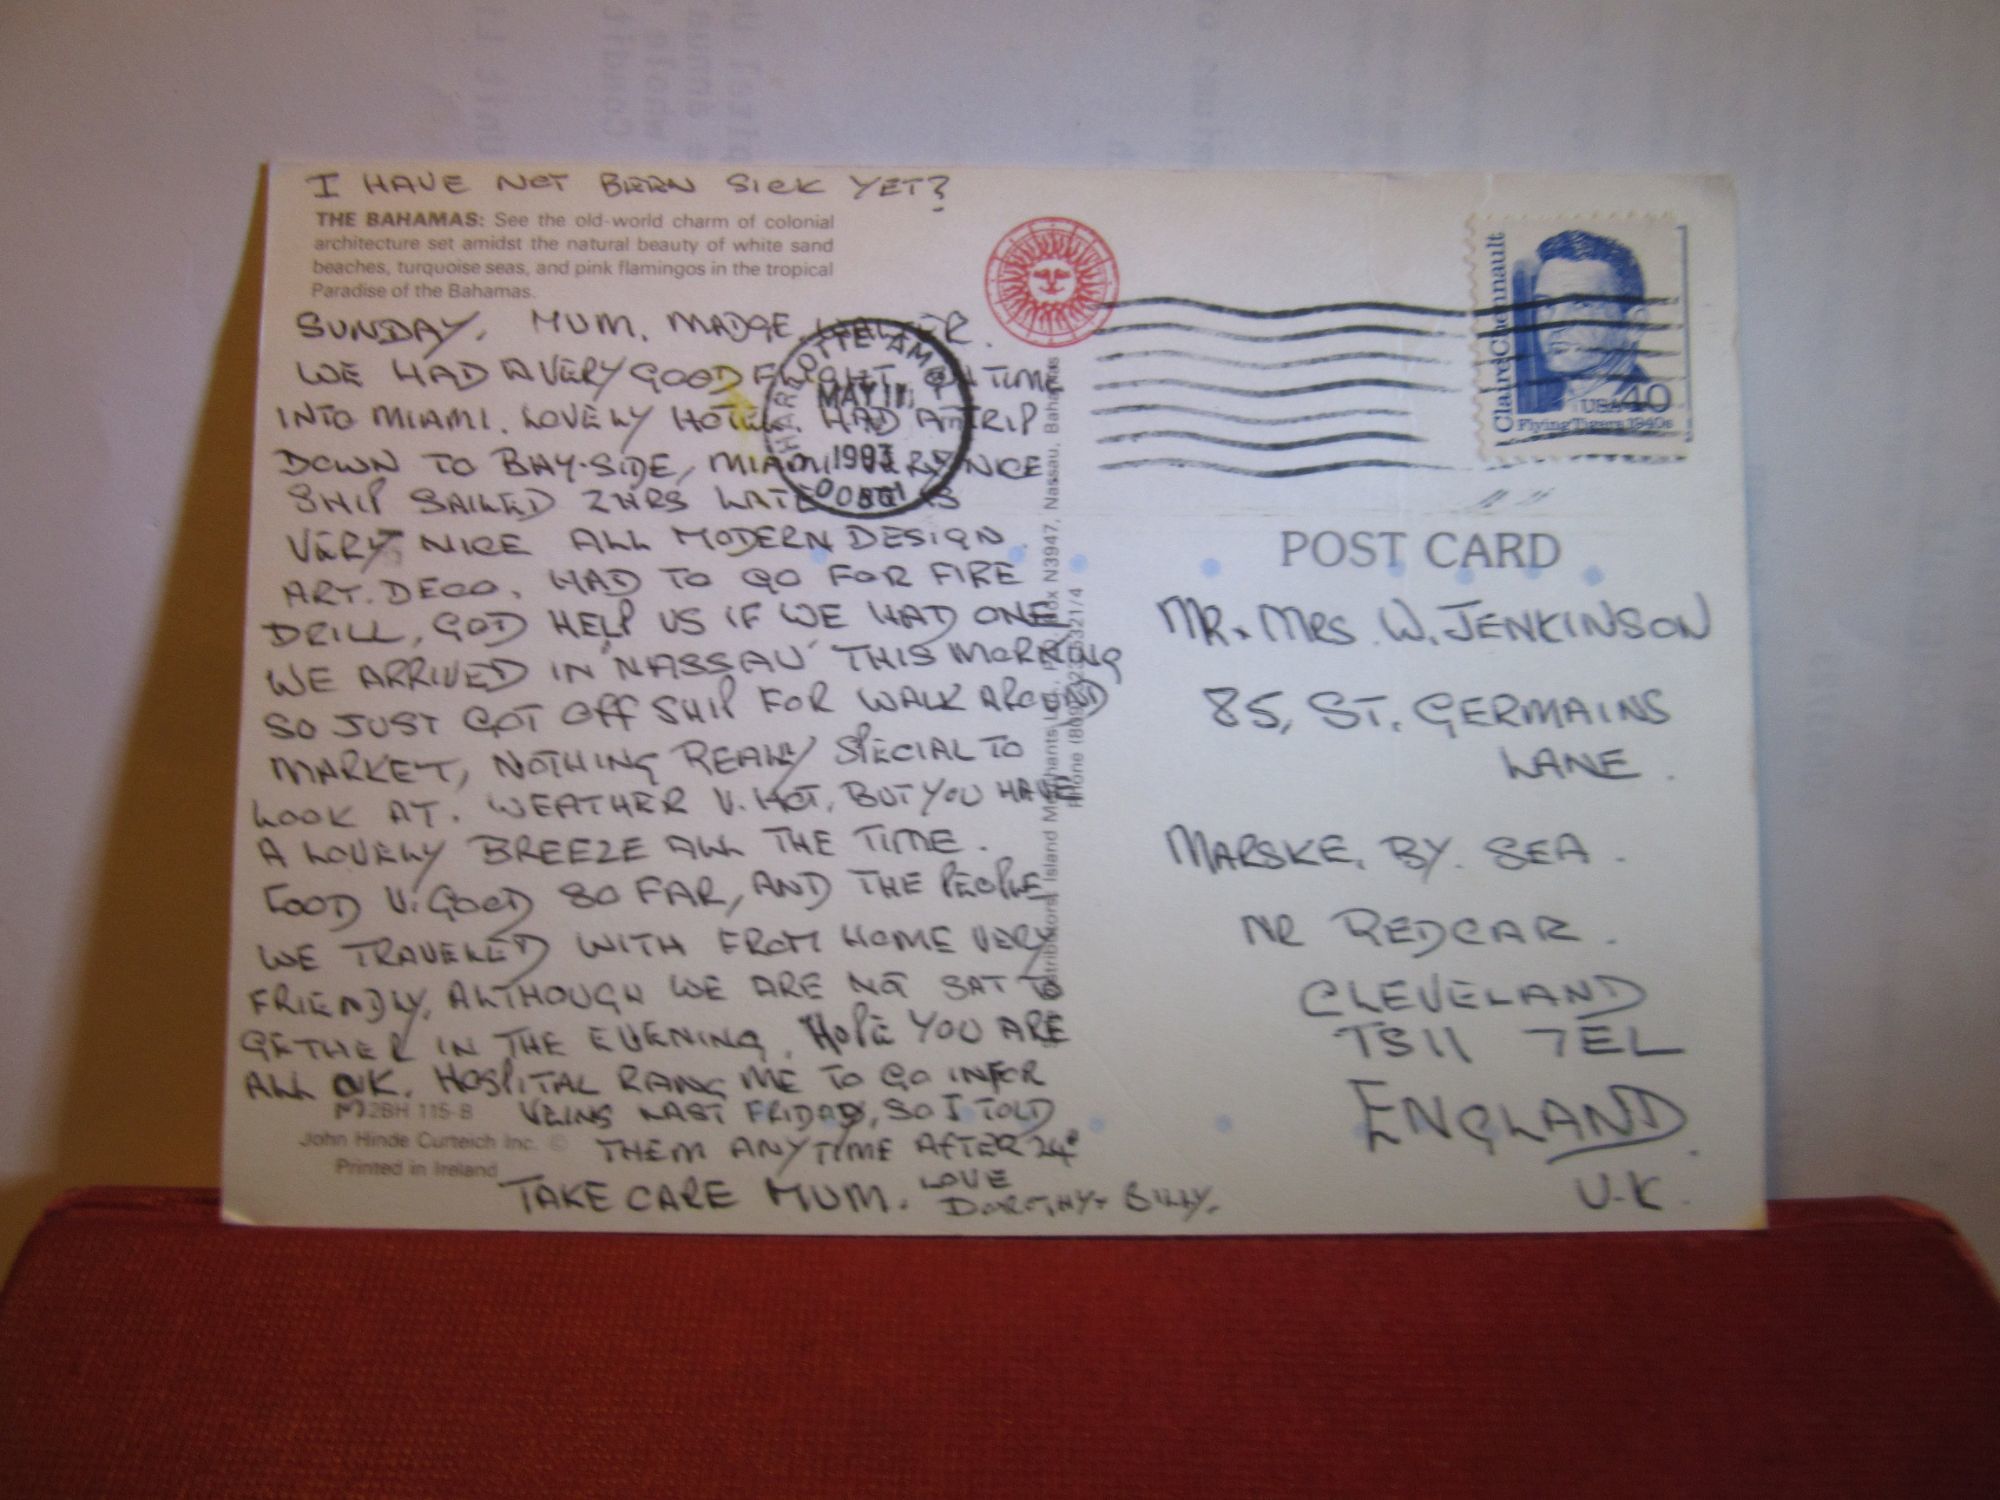 I HAVE NOT BEEN SICK YET?
THE BAHAMAS: See the old-world charm of colonial
architecture set amidst the natural beauty of white sand
beaches, turquoise seas, and pink flamingos in the tropical
Paradise of the Bahamas.
SUNDAY. MUM. MADGE WALTER.
WE HAD A VERY GOOD FLIGHT, ON TIME
INTO MIAMI. LOVELY HOTEL. HAD A TRIP
DOWN TO BAY-SIDE, MIAMI VERY NICE
SHIP SAILED 2HRS LATE IS
VERY NICE ALL MODERN DESIGN
ART. DECO. HAD TO GO FOR FIRE
DRILL, GOD HELP US IF WE HAD ONE
WE ARRIVED IN "NASSAU" THIS MORNING
SO JUST GOT OFF SHIP FOR WALK AROUND
MARKET, NOTHING REALLY SPECIAL TO
LOOK AT. WEATHER V. HOT, BUT YOU HAVE
A LOVELY BREEZE ALL THE TIME.
FOOD V. GOOD SO FAR, AND THE PEOPLE
WE TRAVELED WITH FROM HOME VERY
FRIENDLY, ALTHOUGH WE ARE NOT SAT TO
GETHER IN THE EVENING. HOPE YOU ARE
ALL OK. HOSPITAL RANG ME TO GO IN FOR
VEINS LAST FRIDAY, SO I TOLD
THEM ANYTIME AFTER 24th
TAKE CARE MUM. LOVE
DOROTHY + BILLY.
2BH 115-B
John Hinde Curteich Inc. ©
Printed in Ireland
Distributors: Island Merchants Ltd., P.O. Box N3947, Nassau, Bahamas
Phone
CHARLOTTE AMALIE
MAY 11
1993
Claire Chennault
USA 40
Flying Tigers 1940s
POST CARD
MR. MRS. W. JENKINSON
85, ST. GERMAINS
LANE.
MARSKE. BY. SEA.
NR REDCAR.
CLEVELAND
TS11 7EL
ENGLAND.
U.K.